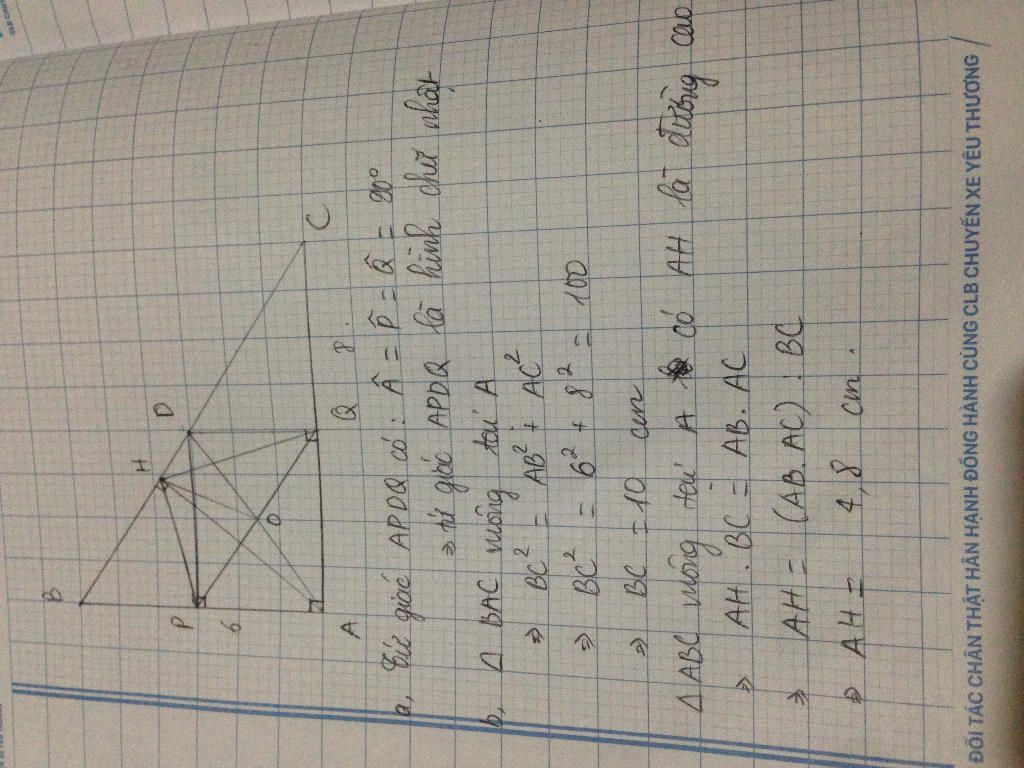 B
H
D
P
6
O
A
Q
8
C
a, Tứ giác APDQ có: Â = P̂ = Q̂ = 90°
⇒ tứ giác APDQ là hình chữ nhật
b, Δ BAC vuông tại A
⇒ BC² = AB² + AC²
⇒ BC² = 6² + 8² = 100
⇒ BC = 10 cm
Δ ABC vuông tại A có AH là đường cao
⇒ AH . BC = AB . AC
⇒ AH = (AB . AC) : BC
⇒ AH = 4,8 cm .
ĐỐI TÁC CHÂN THẬT HÂN HẠNH ĐỒNG HÀNH CÙNG CLB CHUYẾN XE YÊU THƯƠNG